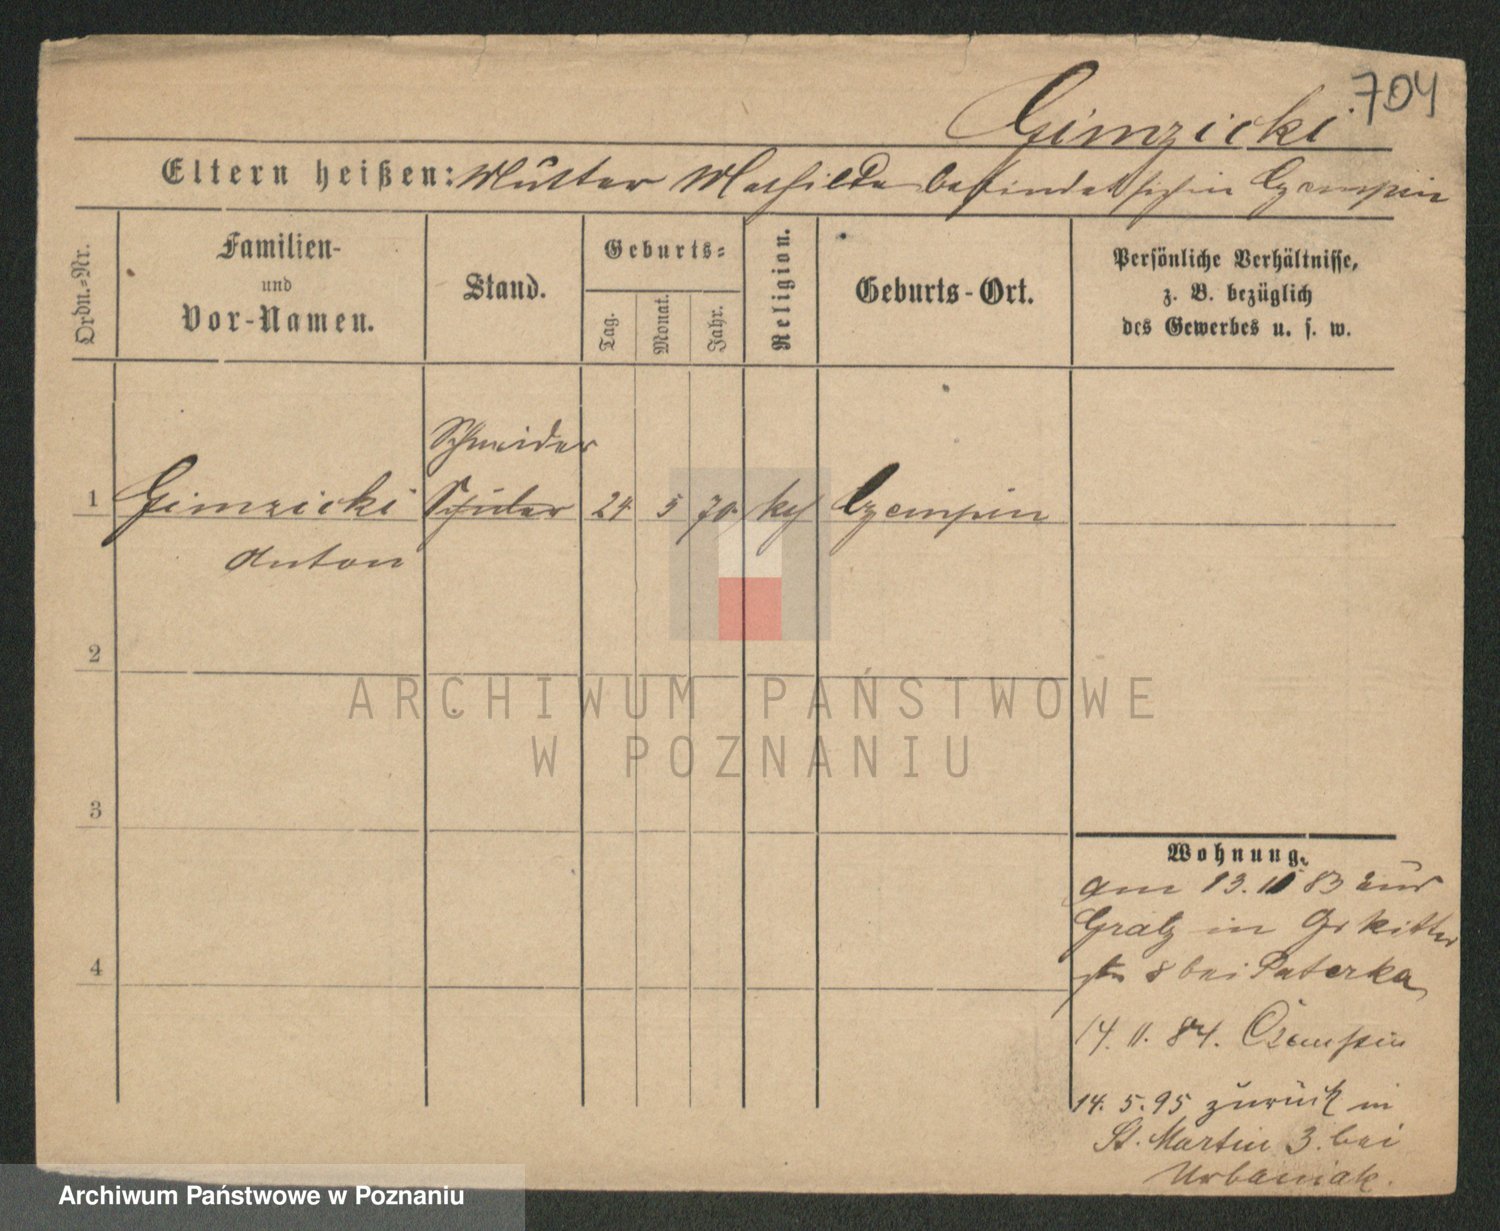 704
Gimzicki
Eltern heißen: Mutter Mathilde befindet sich in Czempin
Ordn.=Nr.
Familien-
und
Vor-Namen.
Stand.
Geburts=
Tag.
Monat.
Jahr.
Religion.
Geburts-Ort.
Persönliche Verhältnisse,
z. B. bezüglich
des Gewerbes u. s. w.
Schneider
1 Gimzicki Schüler 24 5 70 kth Czempin
Anton
2
3
4
Wohnung.
am 83 aus
Gratz in Gr Ritter
str 8 bei Paterka
14. 11. 84. Czempin
14. 5. 95 zurück in
St. Martin 3. bei
Urbaniak.
ARCHIWUM PAŃSTWOWE
W POZNANIU
Archiwum Państwowe w Poznaniu